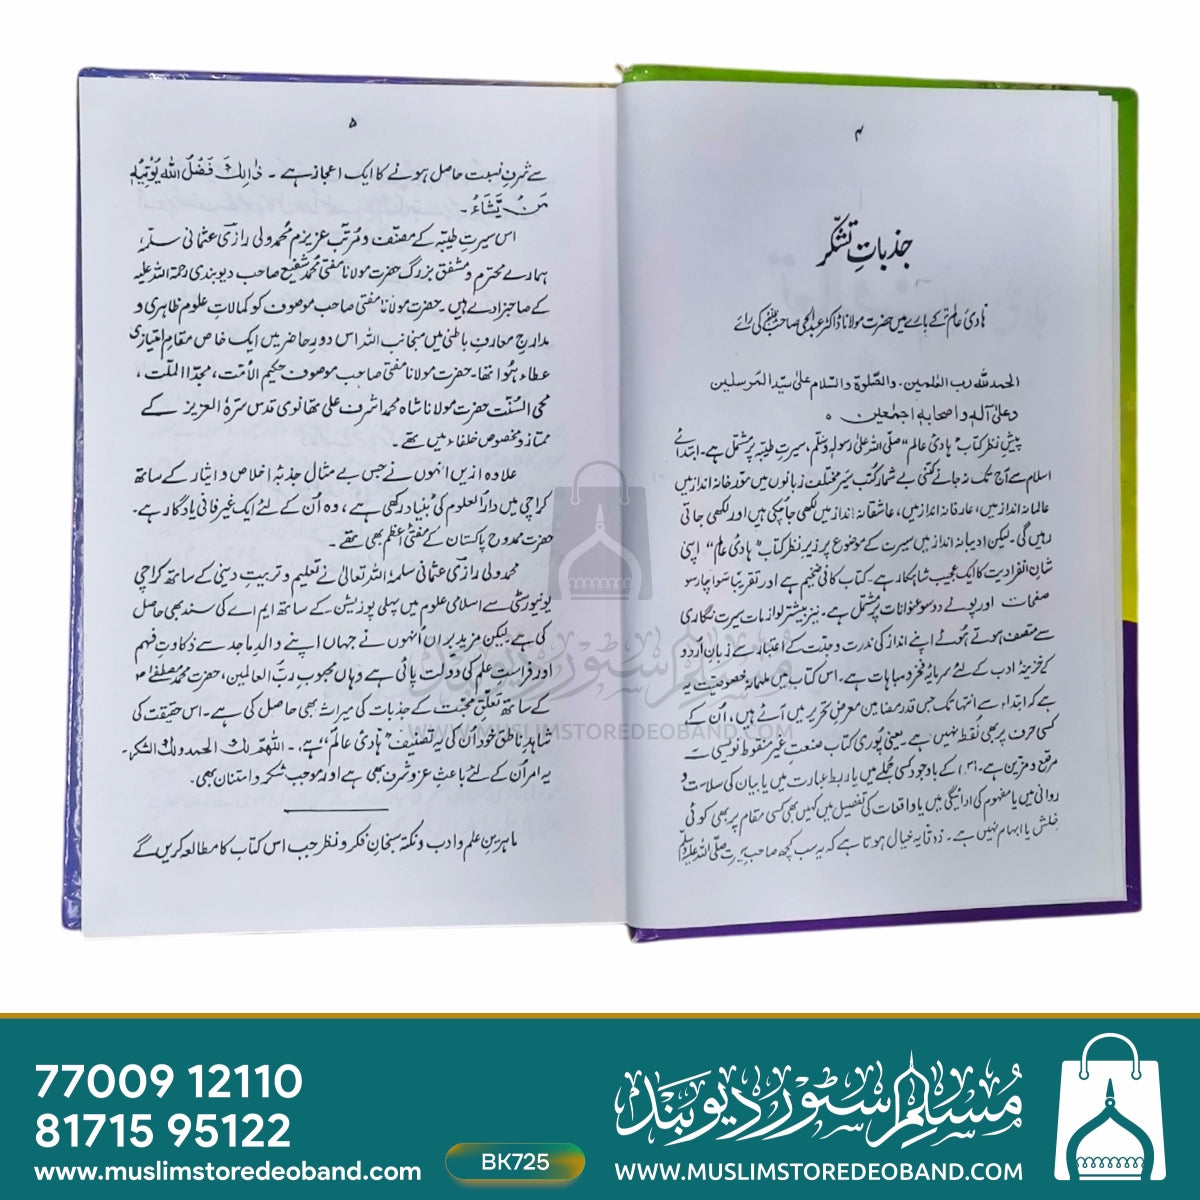 ۴
جذباتِ تشکّر
ہادئ عالمؐ کے بارے میں حضرت مولانا ڈاکٹر عبدالحئی صاحب کی رائے
الحمد للہ رب العٰلمین۔ والصّلوۃ والسّلام علیٰ سیّد المرسلین
وعلیٰ آلہٖ واصحابہٖ اجمعین ہ
پیش نظر کتاب "ہادئ عالم" صلّی اللہ علیٰ رسولہٖ وسلّم، سیرتِ طیّبہ پر مشتمل ہے۔ ابتدائے
اسلام سے آج تک نہ جانے کتنی بے شمار کتب سیَر مختلف زبانوں میں مورّخانہ انداز میں
عالمانہ انداز میں، عارفانہ انداز میں، عاشقانہ انداز میں لکھی جاچکی ہیں اور لکھی جاتی
رہیں گی۔ لیکن ادیبانہ انداز میں سیرت کے موضوع پر زیرِ نظر کتاب "ہادئ عالم" اپنی
شانِ انفرادیت کا ایک عجیب شاہکار ہے۔ کتاب کافی ضخیم ہے اور تقریباً سوا چار سو
صفحات اور پونے دو سو عنوانات پر مشتمل ہے۔ نیز بیشتر لوازمات سیرت نگاری
سے متصف ہوتے ہوئے اپنے انداز کی ندرت و جدّت کے اعتبار سے زبان اُردو
کے خزینۂ ادب کے لئے سرمایۂ فخر و مباہات ہے۔ اس کتاب میں ملہمانہ خصوصیت یہ
ہے کہ ابتداء سے انتہا تک جس قدر مضامین معرضِ تحریر میں آئے ہیں، اُن کے
کسی حرف پر بھی نُقطہ نہیں ہے۔ یعنی پوری کتاب صنعتِ غیر منقوط نویسی سے
مرقع و مزیّن ہے۔ اس کے باوجود کسی جُملے میں یا ربط عبارت میں یا بیان کی سلاست و
روانی میں یا مفہوم کی ادائیگی میں یا واقعات کی تفصیل میں کہیں بھی کسی مقام پر بھی کوئی
خلش یا ابہام نہیں ہے۔ ذوقاً یہ خیال ہوتا ہے کہ یہ سب کچھ صاحبِ سیرت صلّی اللہ علیہ وسلّم
۵
سے شرفِ نسبت حاصل ہونے کا ایک اعجاز ہے۔ ذٰالِکَ فَضْلُ اللّٰہِ یُوْتِیْہِ
مَنْ یَّشَاءُ۔
اس سیرتِ طیّبہ کے مصنّف و مُرتّب عزیزم محمد ولی رازیؔ عثمانی سلّمہٗ
ہمارے محترم و مشفق بزرگ حضرت مولانا مفتی محمد شفیع صاحب دیوبندی رحمۃ اللہ علیہ
کے صاحبزادے ہیں۔ حضرت مولانا مفتی صاحب موصوف کو کمالاتِ علومِ ظاہری و
مدارجِ معارفِ باطنی میں منجانب اللہ اس دورِ حاضر میں ایک خاص مقامِ امتیازی
عطاء ہُوا تھا۔ حضرت مولانا مفتی صاحب موصوف حکیم الاُمّت، مجدّد الملّت،
محی السُّنّت حضرت مولانا شاہ محمد اشرف علی تھانوی قدس سرّہٗ العزیز کے
ممتاز و مخصوص خلفاء میں تھے۔
علاوہ ازیں انہوں نے جس بے مثال جذبۂ اخلاص و ایثار کے ساتھ
کراچی میں دارُالعلوم کی بُنیاد رکھی ہے، وہ اُن کے لئے ایک غیر فانی یادگار ہے۔
حضرت ممدوح پاکستان کے مفتئ اعظم بھی تھے۔
محمد ولی رازیؔ عثمانی سلّمہٗ اللہ تعالیٰ نے تعلیم و تربیت دینی کے ساتھ کراچی
یونیورسٹی سے اسلامی علوم میں پہلی پوزیشن کے ساتھ ایم اے کی سند بھی حاصل
کی ہے لیکن مزید براں اُنہوں نے جہاں اپنے والدِ ماجد سے ذکاوتِ فہم
اور فراستِ علم کی دولت پائی ہے وہاں محبوبِ ربّ العالمین، حضرت محمد مصطفیٰ ؐ
کے ساتھ تعلّقِ محبّت کے جذبات کی میراث بھی حاصل کی ہے۔ اس حقیقت کی
شاہدِ ناطق خود اُن کی یہ تصنیف "ہادئ عالم" ہے۔ اللھمّ لک الحمد ولک الشکر۔
یہ امر اُن کے لئے باعثِ عزّ و شرف بھی ہے اور موجب شکر و امتنان بھی۔
ماہرینِ علم و ادب و نکتہ سنجانِ فکر و نظر جب اس کتاب کا مطالعہ کریں گے
مسلم سٹور دیوبند
WWW.MUSLIMSTOREDEOBAND.COM
77009 12110
81715 95122
www.muslimstoredeoband.com
BK725
مسلم سٹور دیوبند
WWW.MUSLIMSTOREDEOBAND.COM